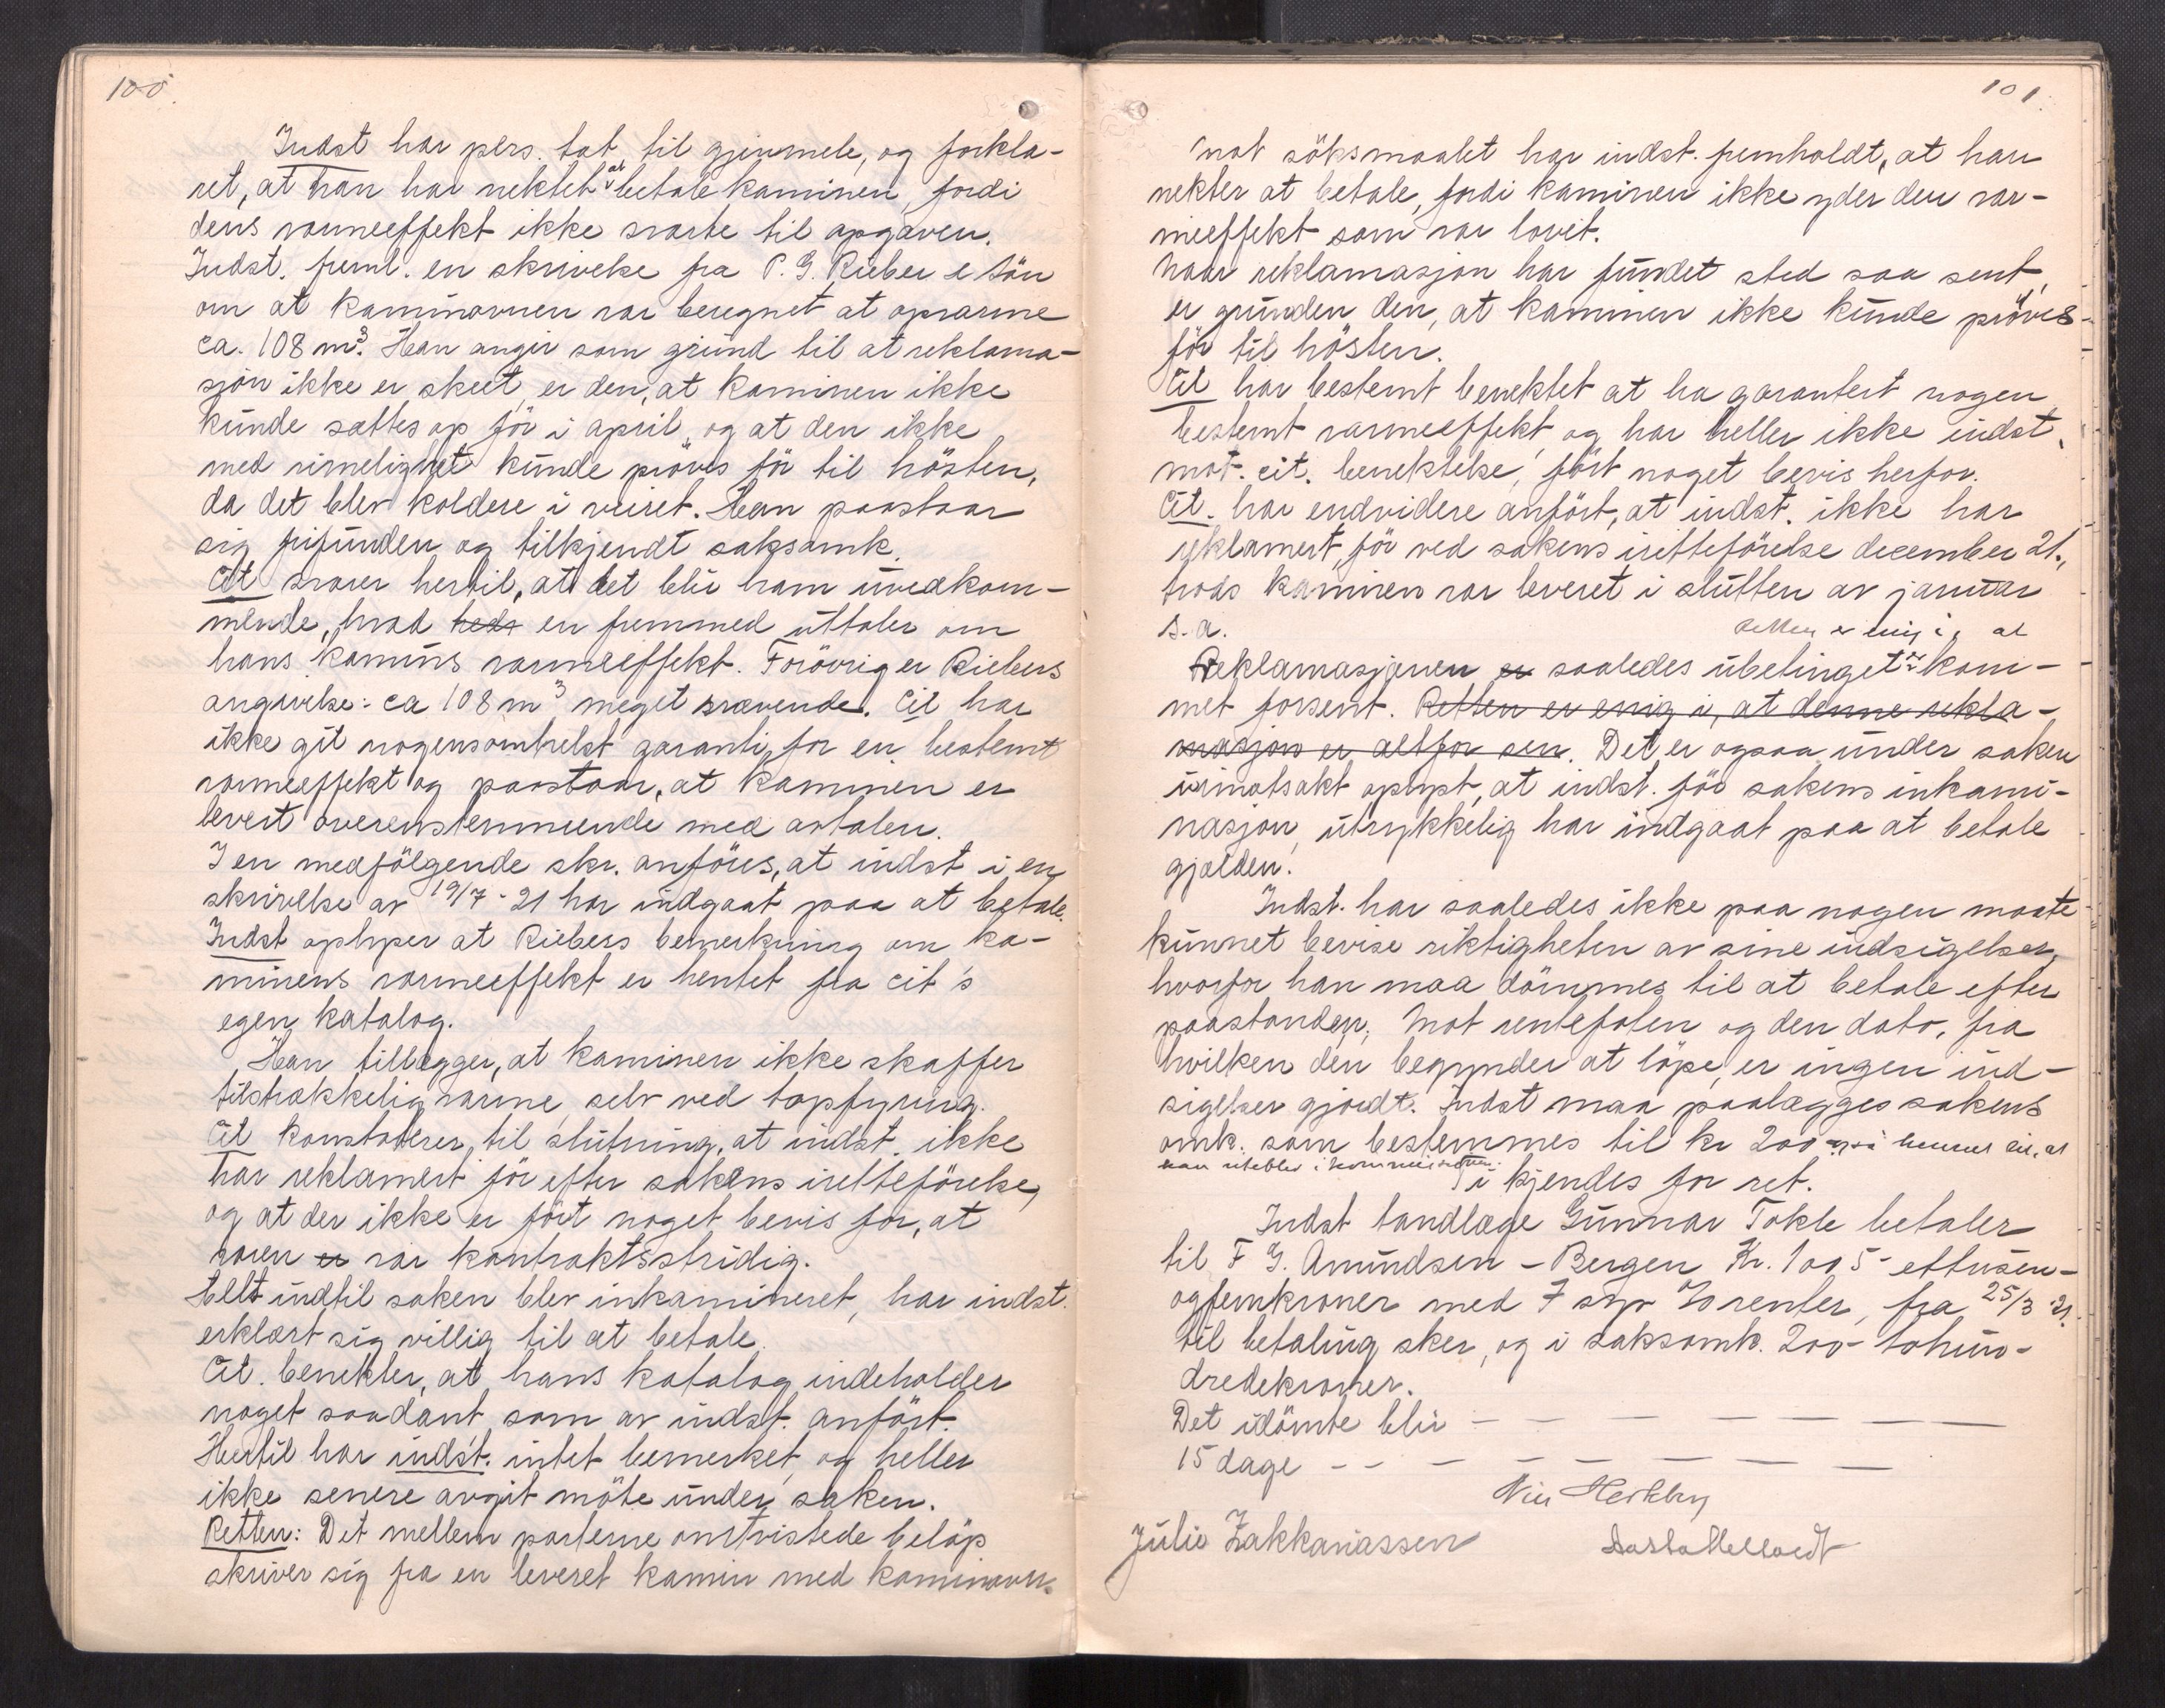 100.
Indst har pers. tat til gjenmele, og forkla-
ret, at han har nektet at betale kaminen, fordi
dens varmeeffekt ikke svarte til opgaven.
Indst. freml. en skrivelse fra P. G. Rieber & Sön
om at kaminovnen var beregnet at opvarme
ca. 108 m³. Han angir som grund til at reklama-
sjon ikke er skeet, er den, at kaminen ikke
kunde sættes op för i april, og at den ikke
med rimelighet kunde pröves för til hösten,
da det blev koldere i veiret. Han paastaar
sig frifunden og tilkjendt saksomk.
Cit svarer hertil, at det blir ham uvedkom-
mende, hvad heds en fremmed uttaler om
hans kamins varmeeffekt. Forövrig er Riebers
angivelse: ca 108 m³ meget svævende. Cit har
ikke git nogensomhelst garanti for en bestemt
varmeeffekt og paastaar, at kaminen er
levert overenstemmende med avtalen.
I en medfölgende skr. anföres, at indst i en
skrivelse av 19/7-21 har indgaat paa at betale.
Indst oplyser at Riebers bemerkning om ka-
minens varmeeffekt er hentet fra cit's
egen katalog.
Han tillægger, at kaminen ikke skaffer
tilstrækkelig varme, selv ved topfyring.
Cit konstaterer til slutning, at indst. ikke
har reklamert för efter sakens iretteförelse,
og at der ikke er fört noget bevis for, at
varen er var kontraktsstridig.
Helt indtil saken blev inkamineret, har indst.
erklært sig villig til at betale.
Cit. benekter, at hans katalog indeholder
noget saadant som av indst. anfört.
Hertil har indst. intet bemerket, og heller
ikke senere avgit möte under saken.
Retten: Det mellem parterne omtvistede belöp
skriver sig fra en leveret kamin med kaminovn.
101.
Mot söksmaalet har indst. fremholdt, at han
nekter at betale, fordi kaminen ikke yder den var-
meeffekt som var lovet.
Naar reklamasjon har fundet sted saa sent,
er grunden den, at kaminen ikke kunde pröves
för til hösten.
Cit har bestemt benektet at ha garantert nogen
bestemt varmeeffekt, og har heller ikke indst.
mot cit. benektelse, fört noget bevis herfor.
Cit. har endvidere anfört, at indst. ikke har
reklamert, för ved sakens iretteförelse december 21,
trods kaminen var leveret i slutten av januar
s. a. Retten er enig i, at
Reklamasjonen er saaledes ubetinget er kom-
met forsent. Retten er enig i, at denne rekla-
masjon er altfor sen. Det er ogsaa under saken
uimotsakt oplyst, at indst. för sakens inkami-
nasjon, utrykkelig har indgaat paa at betale
gjælden.
Indst. har saaledes ikke paa nogen maate
kunnet bevise riktigheten av sine indsigelser,
hvorfor han maa dömmes til at betale efter
paastanden. Mot rentefoten og den dato, fra
hvilken den begynder at löpe, er ingen ind-
sigelser gjordt. Indst maa paalægges sakens
omk. som bestemmes til kr 200
kjendes for ret.
Indst tandlæge Gunnar Tokle betaler
til F G. Amundsen - Bergen Kr. 1005 - ettusen-
ogfemkroner med 7 syv % renter, fra 25/3 21.
til betaling sker, og i saksomk. 200 - tohun-
dredekroner.
Det idömte blir - - - - - - -
15 dage - - - - - - - -
Julie Zakkariassen